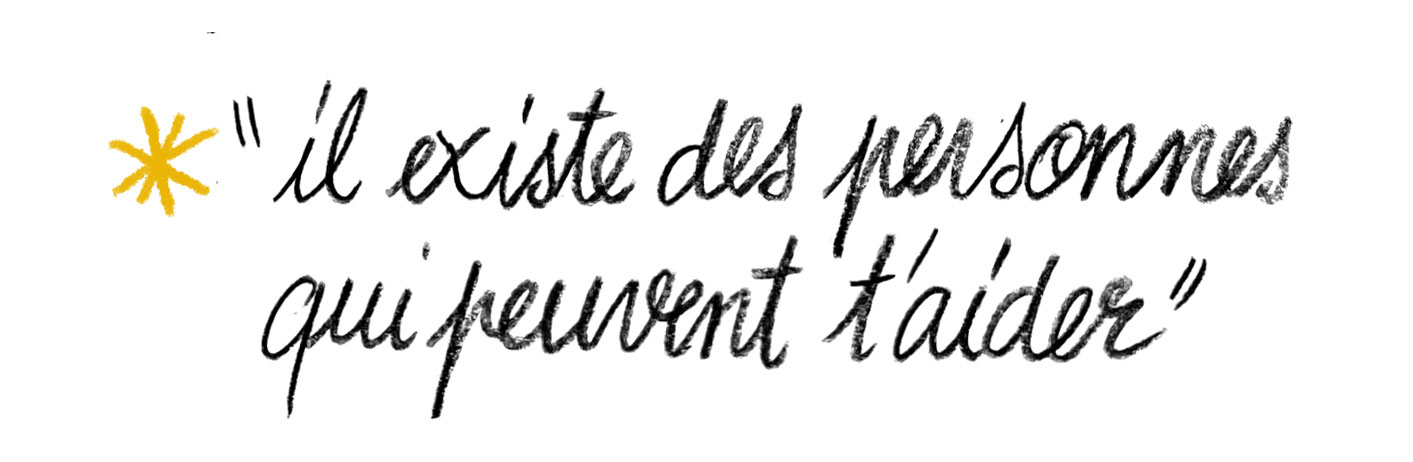 "il existe des personnes
qui peuvent t'aider"